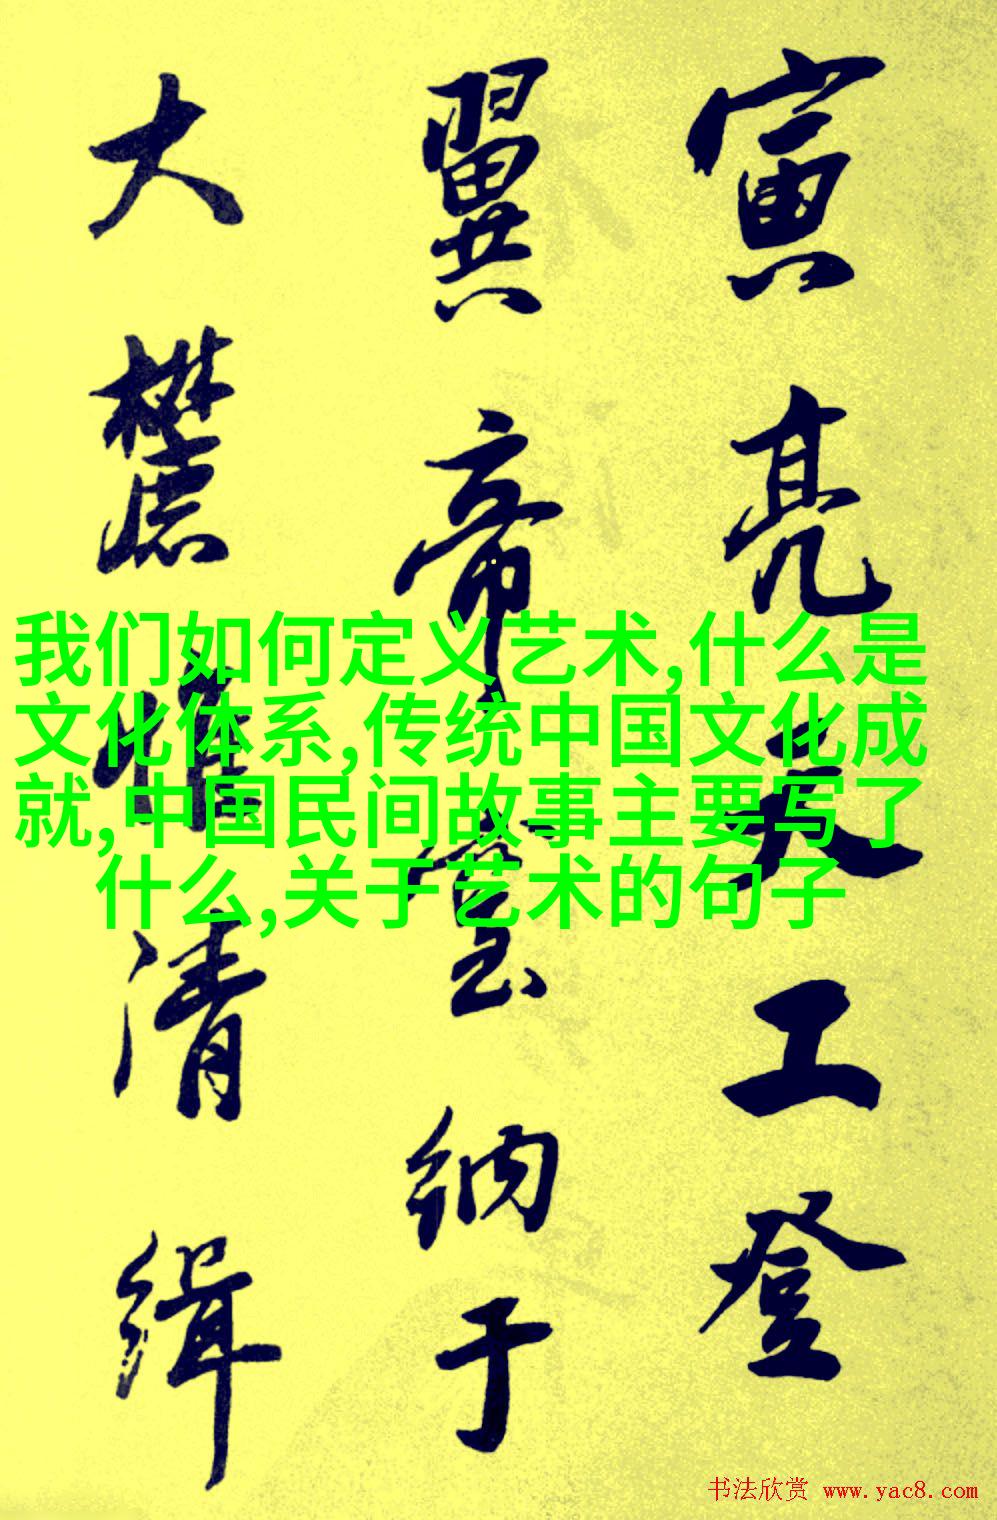 寅亮天工登
翼帝室纳于
大麓惟清缉
我们如何定义艺术,什么是
文化体系,传统中国文化成
就,中国民间故事主要写了
什么,关于艺术的句子
书法欣赏 www.yac8.com